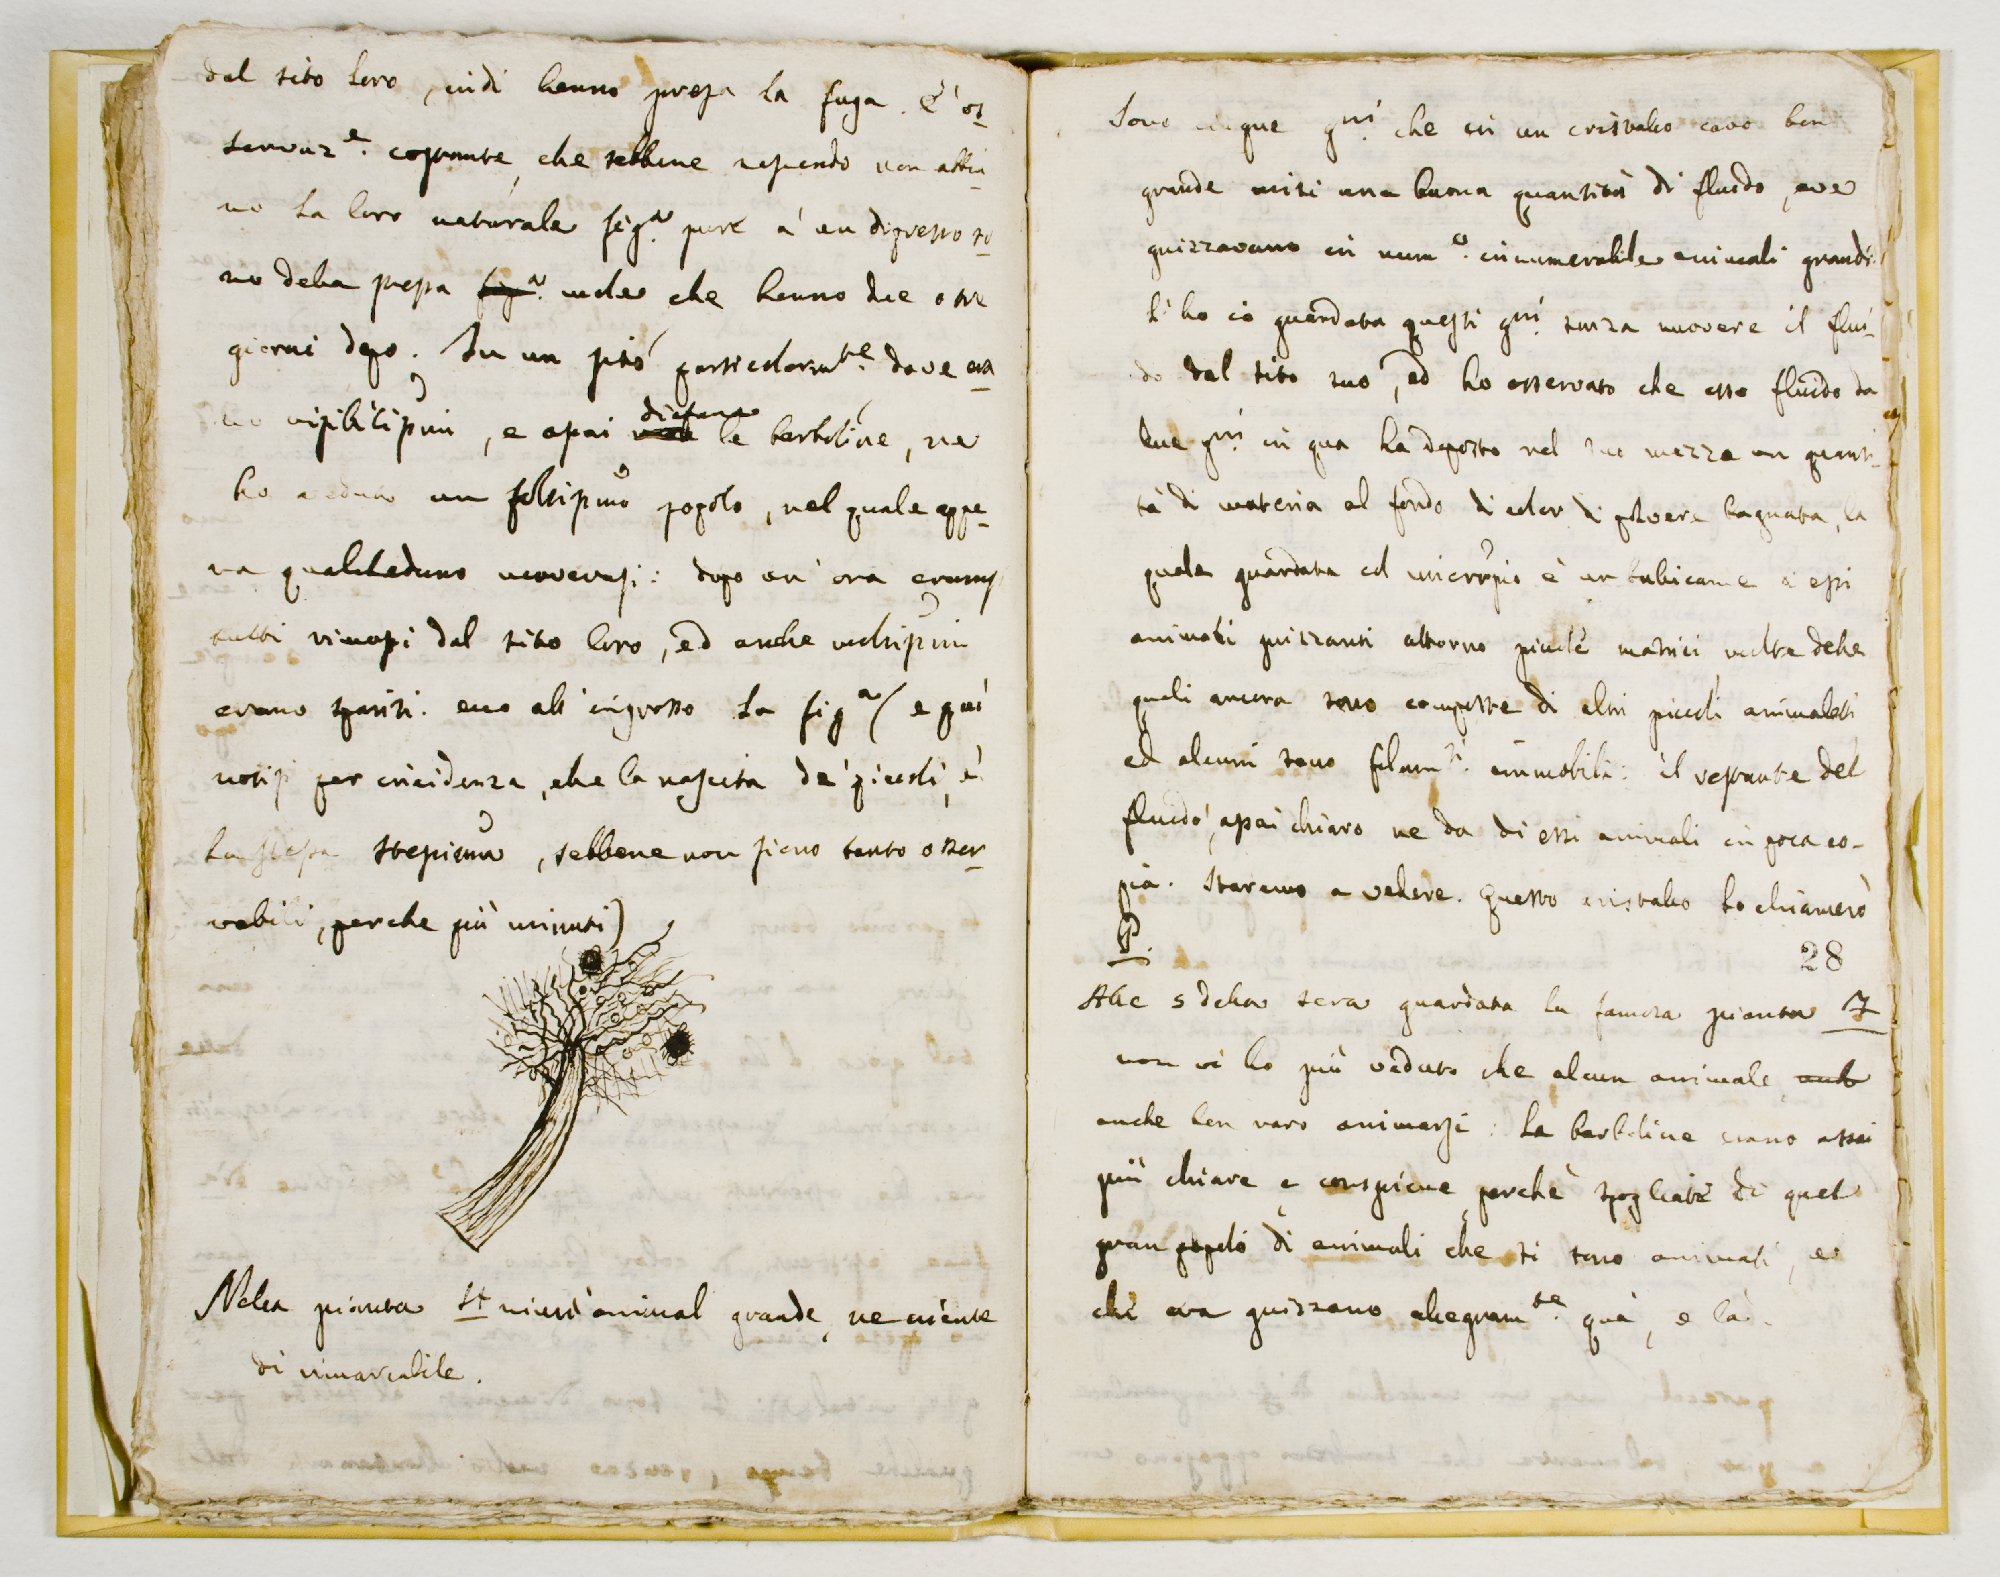 dal sito loro, indi hanno presa la fuga. È os
servaz.e costante, che sebbene nascendo non abbia
no la loro naturale fig.a pure a un dipresso so
no della stessa fig.a moler che hanno due o tre
giorni dopo. In un sito particolarm.te dove era
no visibilissimi, e assai diafane le barboline, ne
ho veduto un foltissimo popolo, nel quale appe
na qualcheduno movevasi: dopo un' ora eransi
tutti rimossi dal sito loro, ed anche moltissimi
erano spariti. ecco all' ingrosso la fig.a (e qui
notisi per incidenza, che la nascita de' piccoli, è
la stessa stessissima, sebbene non sieno tanto osser
vabili, perche più minuti)
Nella pianta St niun' animal grande, ne niente
di rimarcabile.
Sono cinque gni. che in un cristallo cavo ben
grande misi una buona quantità di fluido, ove
guizzavano in num.o innumerabile animali grandi.
L' ho io guardata questi gni. senza muovere il flui-
do dal sito suo, ed ho osservato che esso fluido da
due gni. in qua ha deposto nel suo mezzo un quanti-
tà di materia al fondo di color di polvere bagnata, la
quale guardata col microspio è un bulicame di essi
animali guizzanti attorno piccole matrici molte delle
quali ancora sono composte di altri piccoli animaletti
ed alcuni sono filam.ti immobili: il restante del
fluido, assai chiaro ne da di essi animali in poca co-
pia. Staremo a vedere. Questo cristallo lo chiamerò
P.
28
Alle 5 della sera guardata la famosa pianta 7
non vi ho più veduto che alcun animale, anch
anche ben raro animarsi: la barboline erano assai
più chiare e conspicue, perchè spogliate di quel
gran popolo di animali che si sono animati, e
che ora guizzano allegram.te quà, e là.